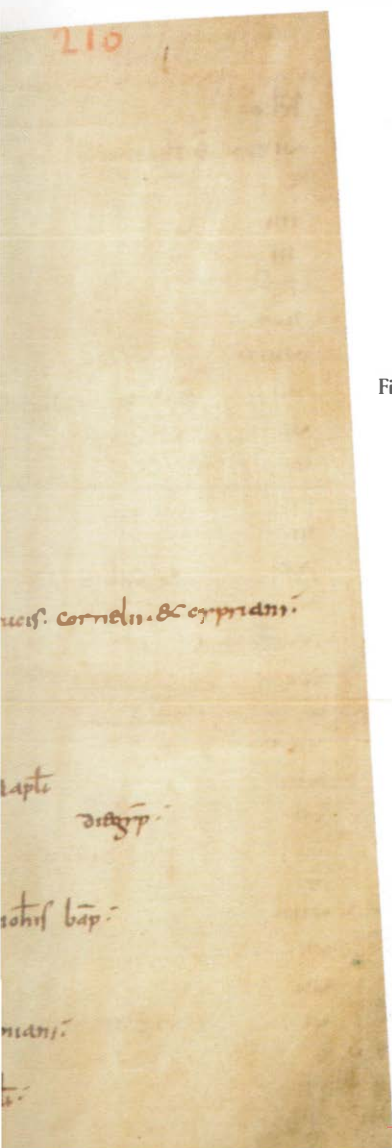 210
ucis. cornelii. & cypriani.
apłi
iohis bap̄
niani.
Fi